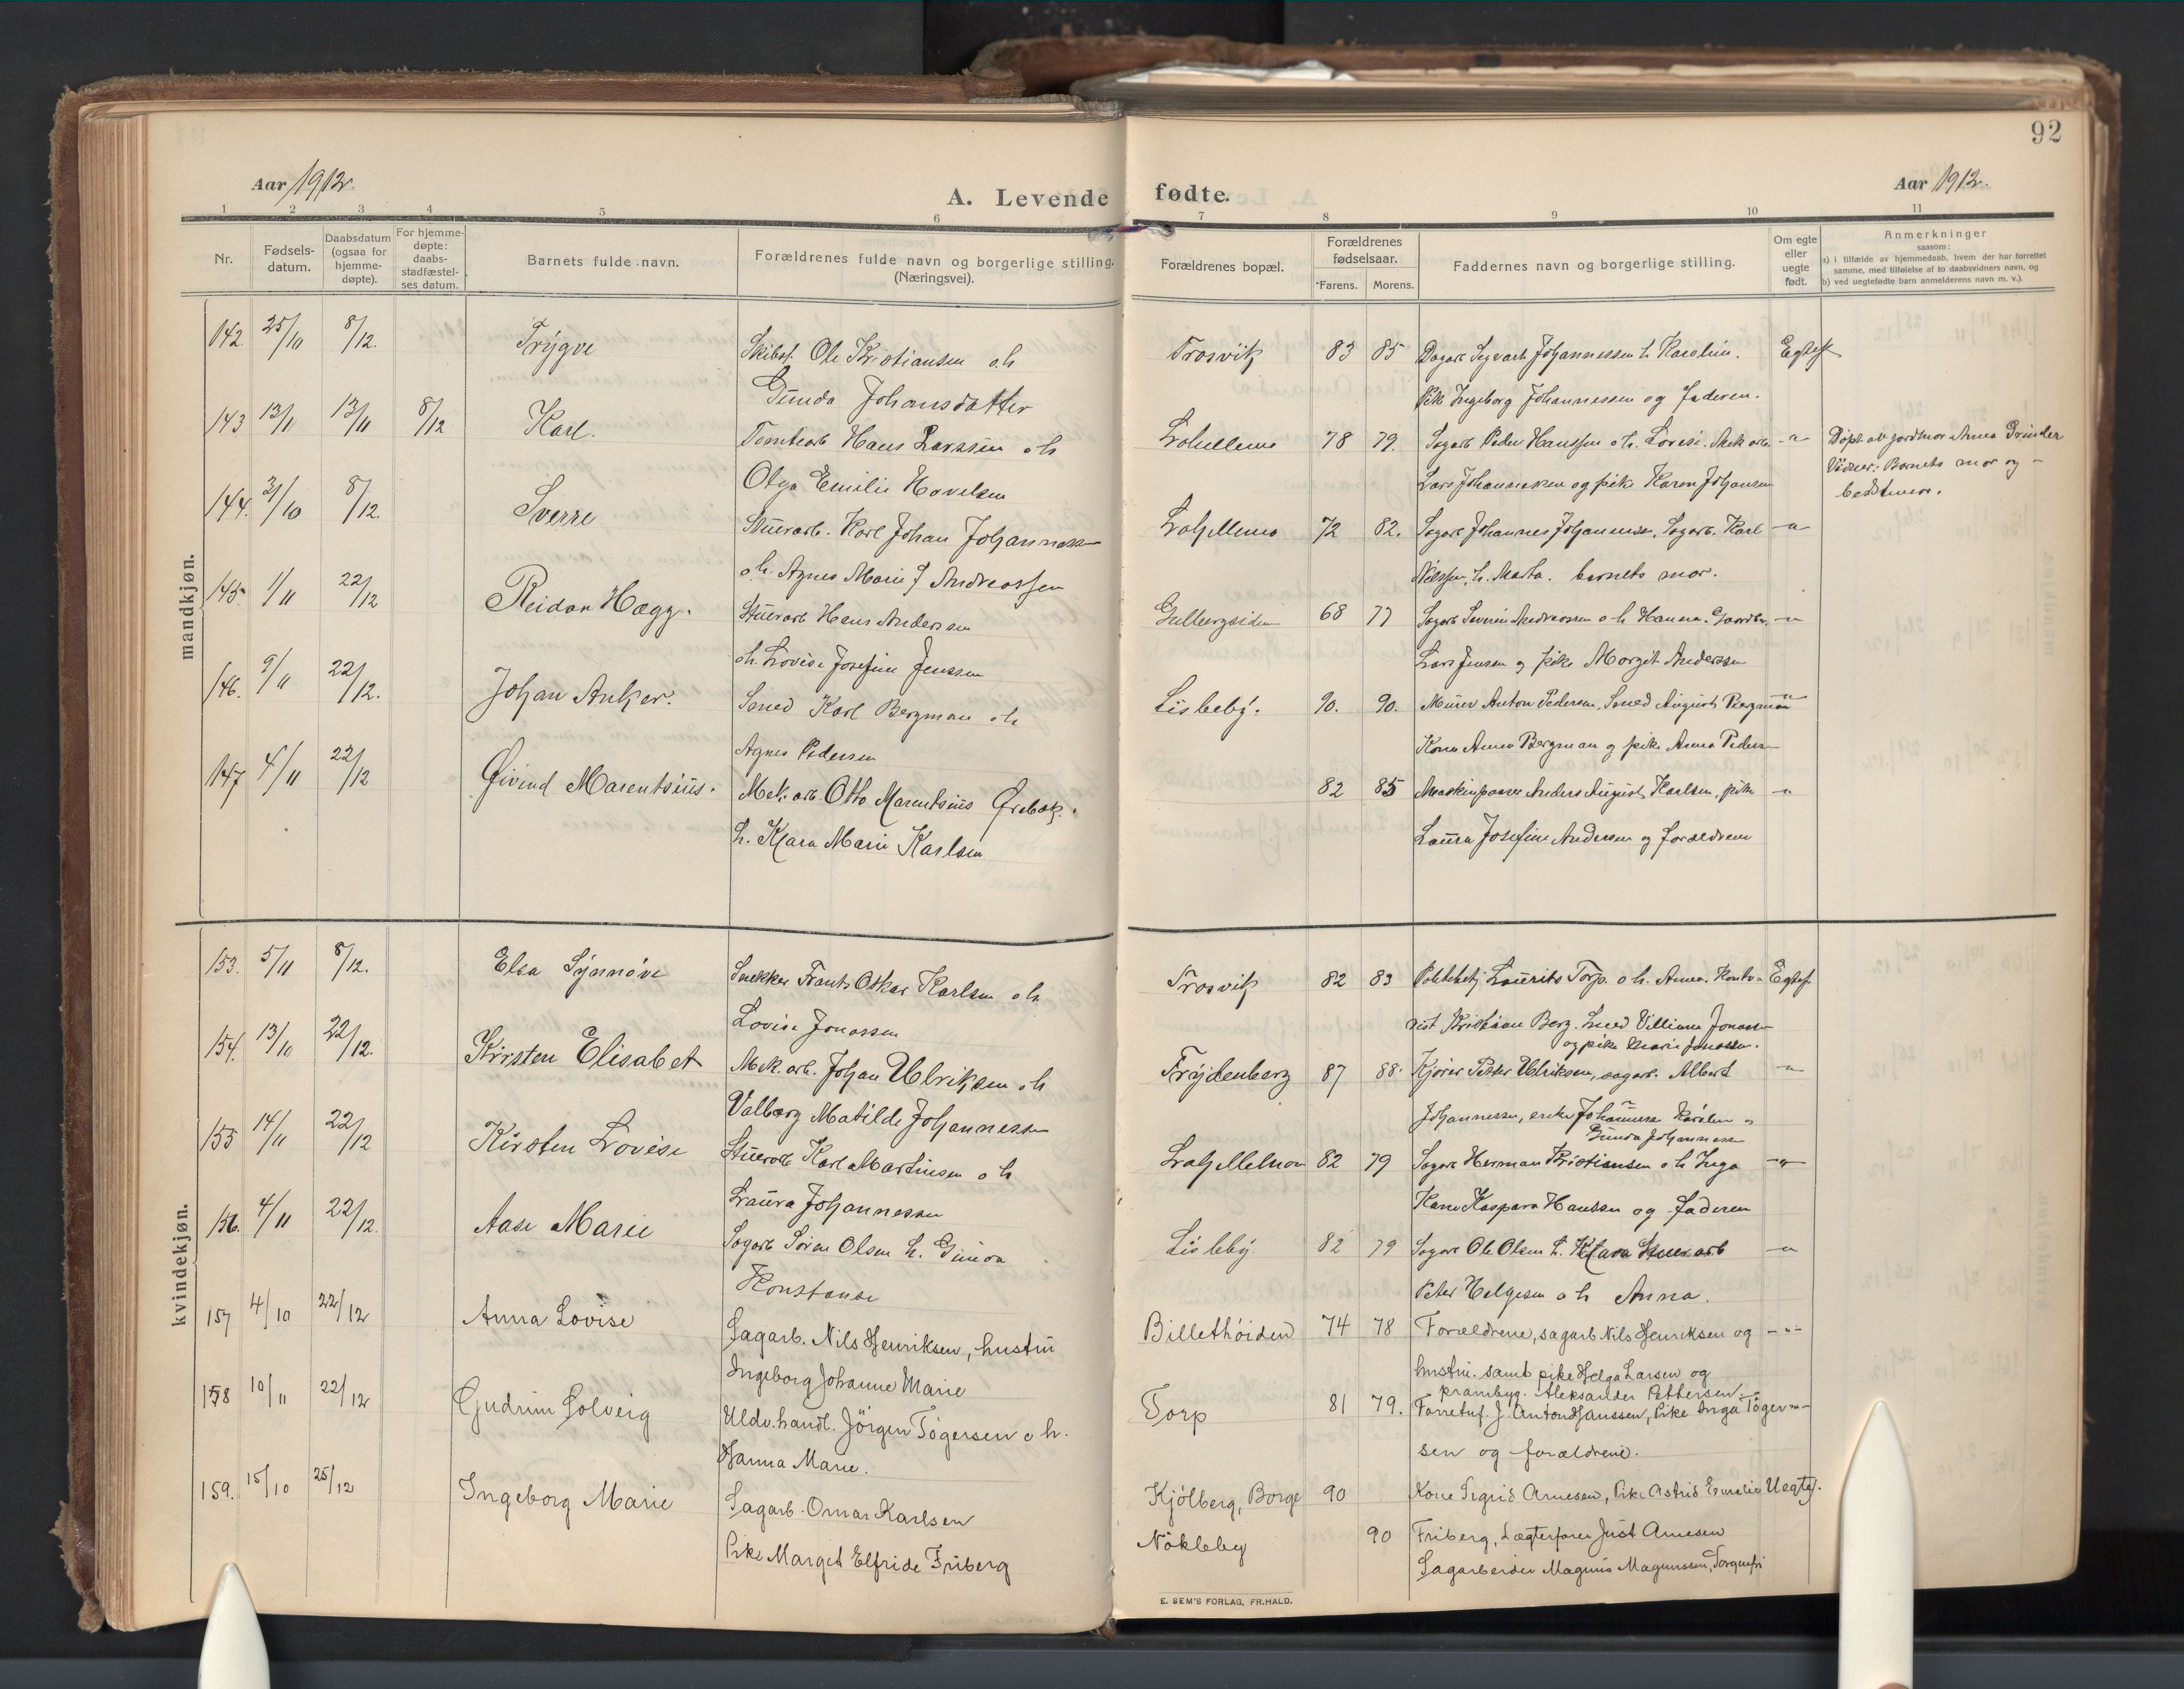 92
Aar 1912.
A. Levende fødte.
Aar 1912.
1 2 3 4 5 6 7 8 9 10 11
Nr.
Fødsels-
datum.
Daabsdatum
(ogsaa for
hjemme-
døpte).
For hjemme-
døpte:
daabs-
stadfæstel-
ses datum.
Barnets fulde navn.
Forældrenes fulde navn og borgerlige stilling.
(Næringsvei).
Forældrenes bopæl.
Forældrenes
fødselsaar.
Farens. Morens.
Faddernes navn og borgerlige stilling.
Om egte
eller
uegte
født.
Anmerkninger
saasom:
a) i tilfælde av hjemmedaab, hvem der har forrettet
samme, med tilføielse af to daabsvidners navn, og
b) ved uegtefødte barn anmelderens navn m. v.).
mandkjøn.
142 25/10 8/12. Trygve Skibst. Ole Kristiansen o.h. Trosvik 83 85 Sigvart Johannessen h. Karoline. Egtef
Gunda Johansdatter Pike Ingeborg Johannessen og faderen.
143 13/11 13/11 8/12 Karl. Tomtearb Hans Larssen o h 78 79. Sagarb Peder Hanssen o.h. Lovise. Mek arb. -"- Døpt av jordmor Anna Grinder
Olga Emilie Havelsen Lars Johannesen og pike Karen Johansen Vidner: Barnets mor og -
bestemor.
144. 31/10 8/12. Sverre Stuerarb. Karl Johan Johannessen 72 82. Sagarb Johannes Johannesen. Sagarb. Karl -"-
o h. Agnes Marie f Andreassen Nilssen, h. Marta. barnets mor.
145. 1/11 22/12 Reidar Hægg. Stuerarb Hans Andersen 68 77 Sagarb Severin Andreassen o h Hanna. -"-
o h. Lovise Josefine Jenssen Lars Jensen og pike Margit Anderssen
146. 9/11 22/12. Johan Anker. Smed Karl Bergman o h Lisleby. 90. 90. Murer Anton Pedersen, Smed August Bergman -"-
Agnes Pedersen Kone Anna Bergman og pike Anna Pedersen
147 4/11 22/12 Øivind Marentsius. Mek. arb. Otto Marentsius Ørebæk. 82 85 Maskinpasser Anders August Karlsen, pike -"-
h. Klara Marie Karlsen Laura Josefine Andersen og forældrene
kvindekjøn.
153. 5/11 8/12. Elsa Synnøve Snekker Frants Oskar Karlsen o h. Trosvik 82 83 Politibetj Laurits Torp. o h. Anna. Konto- Egtef.
Lovise Jonassen rist Kristian Berg. Smed Villiam Jonassen
og pike Marie Jonassen.
154. 13/10 22/12. Kirsten Elisabet Mek. arb. Johan Ulriksen o h Frydenberg 87 88. Kjører Peder Ulriksen, sagarb. Albert -"-
Valborg Matilde Johannessen Johannessen, enke
Gunda Johannessen
155 14/11 22/12 Kirsten Lovise Stuerarb Karl Martinsen o h 82 79 Sagarb Herman Kristiansen o h Inga -"-
Laura Johannessen Kone Kaspara Hanssen og faderen
156. 4/11 22/12. Aase Marie Sagarb Søren Olsen h. Gunda Lisleby 82 79 Sagarb Ole Olsen h. Klara Stuerarb -"-
Konstanse Peter Helgesen o h Anna.
157 4/10 22/12 Anna Lovise Sagarb. Nils Henriksen, hustru Billethøiden 74 78 Forældrene, sagarb Nils Henriksen og -"-
Ingeborg Johanne Marie hustru. samt pike Helga Larsen og
krambug. Aleksander Pettersen.
158 10/11 22/12 Gudrun Solveig Uldv.handl. Jörgen Tögersen o h. Torp 81 79. Forretnf. J. Anton Hanssen, Pike Inga Töger- -"-
Hanna Marie. sen og forældrene.
159. 15/10 25/12 Ingeborg Marie Sagarb. Omar Karlsen Kjölberg, Borge 90 Kone Sigrid Arnesen, Pike Astrid Emelie Uegtef.
Pike Margit Elfride Friberg Nökleby 90 Friberg, Lægterfører Just Arnesen
Sagarbeider Magnus Magnussen, Sorgenfri
E. SEM'S FORLAG, FR.HALD.